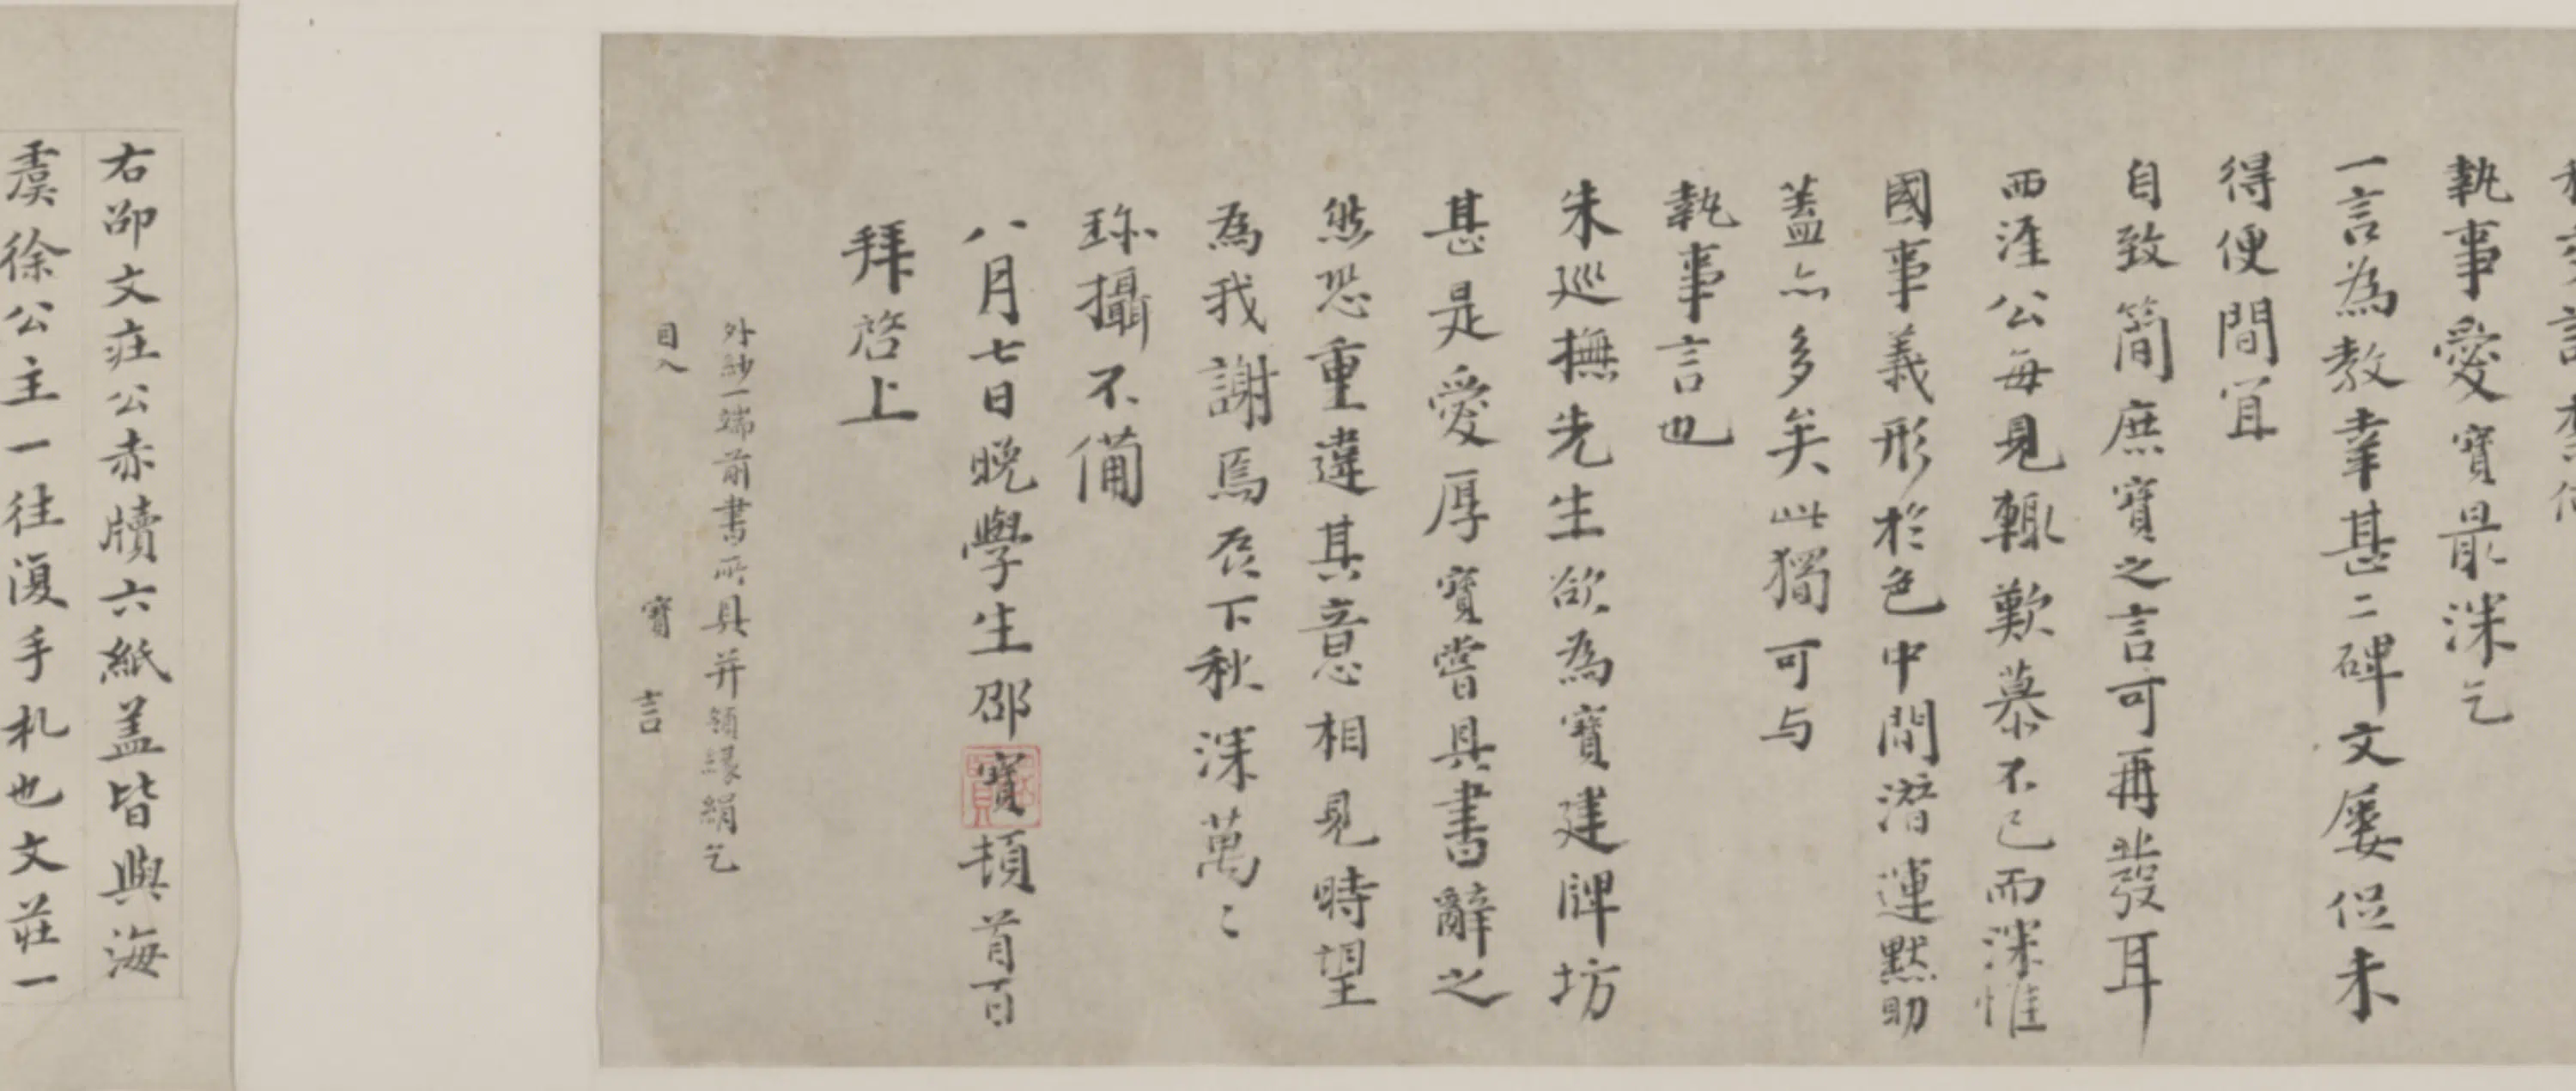 執事愛寶最深乞
一言為教幸甚二碑文屡促未
得便間宜
自致簡庶寶之言可再發耳
西涯公每見輒歎慕不已而深惟
國事義形於色中間潛運默助
蓋亦多矣此獨可与
執事言也
朱巡撫先生欲為寶建牌坊
甚是愛厚寶嘗具書辭之
然恐重違其意相見時望
為我謝焉否下秋深萬〻
珎攝不備
八月七日晚學生邵寶頓首百
拜啓上
外紗一端前書所具并領緑絹乞
目入
寶言
右邵文莊公赤牘六紙盖皆與海
虞徐公主一往復手札也文莊一